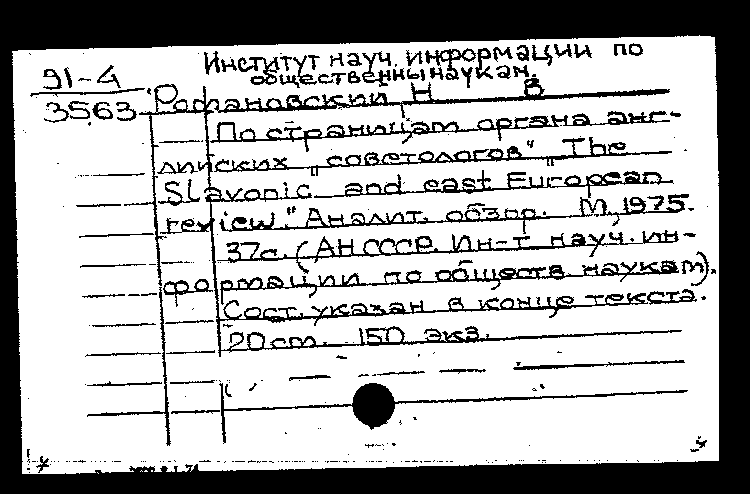 Институт науч. информации по
общественным наукам.
91-4
3563
Романовский Н В
По страницам органа анг-
лийских "советологов" "The
Slavonic and east European
review." Аналит. обзор. М., 1975.
37с. (АН СССР. Ин-т науч. ин-
формации по обществ. наукам).
Сост. указан в конце текста.
20 cm. 150 экз.